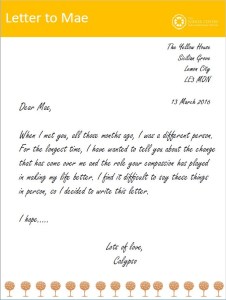 Letter to Mae
The Yellow House
Sicilian Grove
Lemon City
LE3 MON
13 March 2016
Dear Mae,
When I met you, all those months ago, I was a different person.
For the longest time, I have wanted to tell you about the change
that has come over me and the role your compassion has played
in making my life better. I find it difficult to say these things
in person, so I decided to write this letter.
I hope.....
Lots of love,
Calypso